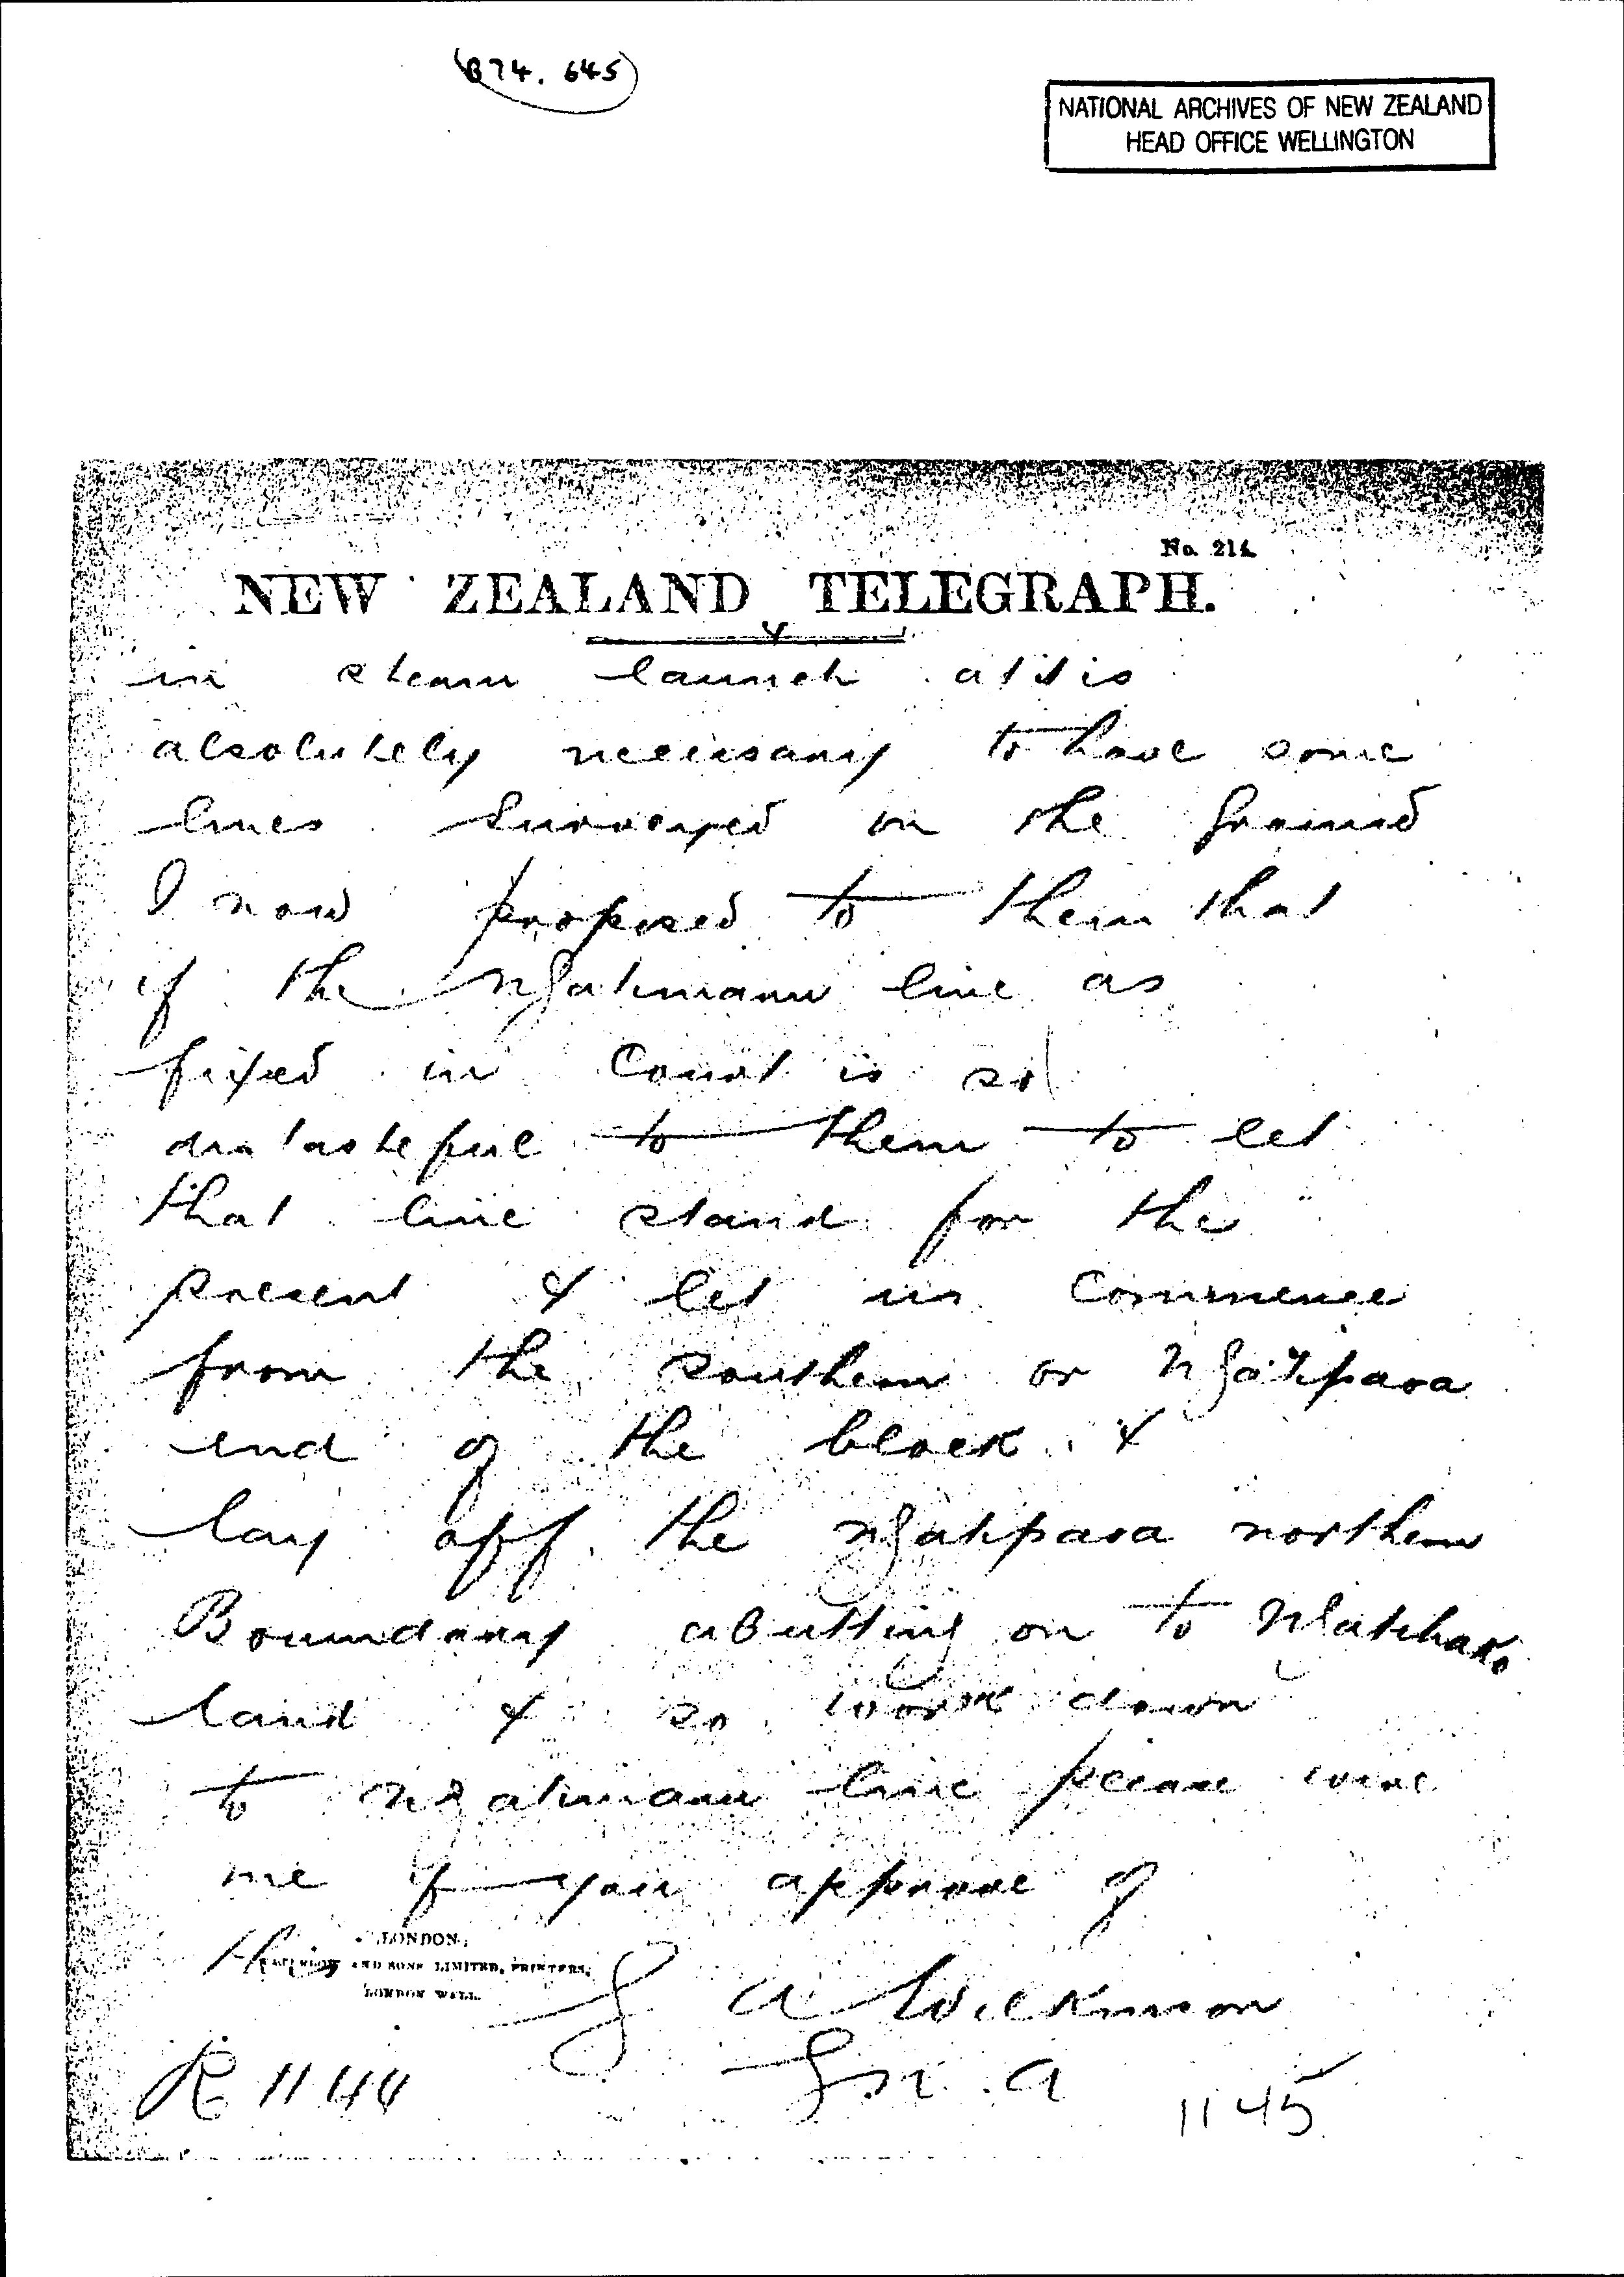 B74. 645
NATIONAL ARCHIVES OF NEW ZEALAND
HEAD OFFICE WELLINGTON
No. 214
NEW ZEALAND TELEGRAPH.
in steam launch as it is
absolutely necessary to have some
lines surveyed on the ground
I now proposed to them that
if the Ngatimaru line as
fixed in Court is so
distasteful to them to let
that line stand for the
present & let us commence
from the southern or Ngatipaoa
end of the block &
lay off the Ngatipaoa northern
Boundary abutting on to Ngatihako
land & so work down
to Ngatimaru line please wire
me if you approve of
this
LONDON:
AND SONS LIMITED, PRINTERS,
LONDON WALL.
G A Wilkinson
R 1144
1145